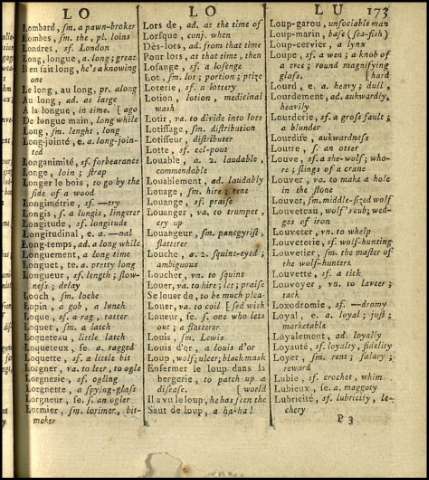 LO
LO
LU
173
Lombard, sm. a pawn-broker
Lombes, sm. the, pl. loins
Londres, sf. London
Long, longue, a. long; great
B en fait long, he's a knowing
one
Le long, au long, pr. along
Au long, ad. at large
A la longue, in time. [ago
De longue main, long while
Long, sm. lenght, long
Long-jointé, e a. long-join-
ted
Longanimité, sf. forbearance
Longe, loin; strap
Longer le bois, to go by the
side of a wood
Longimétrie, sf. —try
Longis, s. f. a lungis, lingerer
Longitude, sf. longitude
Longitudinal, e a. —nal
Long-temps, ad. a long while
Longuement, a long time
Longuet, te, a. pretty long
Longueur, sf. length; slow-
ness; delay
Looch, sm. loche
Lopin, a gob, a lunch
Loque, sf. a rag, tatter
Loquet, sm. a latch
Loqueteau, little latch
Loqueteux, se, a. ragged
Loquette, sf. a little bit
Lorgner, va. to leer, to ogle
Lorgnerie, sf. ogling
Lorgnette, a spying-glass
Lorgneur, se, s. an ogler
Lormier, sm. lorimer, bit-
maker
Lors de, ad. at the time of
Lorsque, conj. when
Dès-lors, ad. from that time
Pour lors, at that time, then
Losange, sf. a losenge
Lot, sm. lot; portion; prize
Loterie, sf. a lottery
Lotion, lotion, medicinal
wash
Lotir, va. to divide into lots
Lotissage, sm. distribution
Lotisseur, distributer
Lotte, sf. eel-pout
Louable, a. 2. laudable,
commendable
Louablement, ad. laudably
Louage, sm. hire, rent
Louange, sf. praise
Louanger, va. to trumpet,
cry up
Louangeur, sm. panegyrist,
flatterer
Louche, a. 2. squint-eyed;
ambiguous
Loucher, va. to squint
Louer, va. to hire; let; praise
Se louer de, to be much plea-
Louer, va. to coil [sed with
Loueur, se, s. one who lets
out; a flatterer
Louis, sm. Lewis
Louis d'or, a louis d'or
Loup, wolf; ulcer; black mask
Enfermer le loup dans la
bergerie, to patch up a
disease. [world
Il a vu le loup, he has seen the
Saut de loup, a ha-ha!
Loup-garou, unsociable man
Loup-marin, base (sea-fish)
Loup-cervier, a lynx
Loupe, sf. a wen; a knob of
a tree; round magnifying
glass. [hard
Lourd, e, a. heavy; dull
Lourdement, ad. awkwardly,
heavily
Lourderie, sf. a gross fault;
a blunder
Lourdise, aukwardness
Loutre, sf. an otter
Louve, sf. a she-wolf; who-
re; slings of a crane
Louver, va. to make a hole
in the stone
Louvet, sm. middle-sized wolf
Louveteau, wolf's cub; wed-
ges of iron
Louveter, vn. to whelp
Louveterie, sf. wolf-hunting
Louvetier, sm. the master of
the wolf-hunters
Louvette, sf. a tick
Louvoyer, va. to laveer;
tack
Loxodromie, sf. —dromy
Loyal, e a. loyal; just;
marketable
Loyalement, ad. loyally
Loyauté, sf. loyalty, fidelity
Loyer, sm. rent; salary;
reward
Lubie, sf. crochet, whim
Lubieux, se a. maggoty
Lubricité, sf. lubricity, le-
chery
P 3